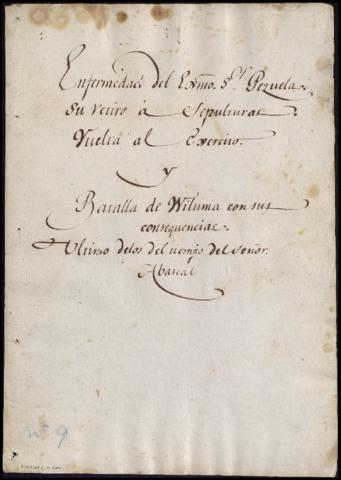 Enfermedad del Exmo. Sor. Pezuela.
Su retiro à Sepulturas
Vuelta al Exercito.
Y
Batalla de Wiluma con sus
consequencias.
Ultimo de los del tiempo del Señor
Abascal
nº 9